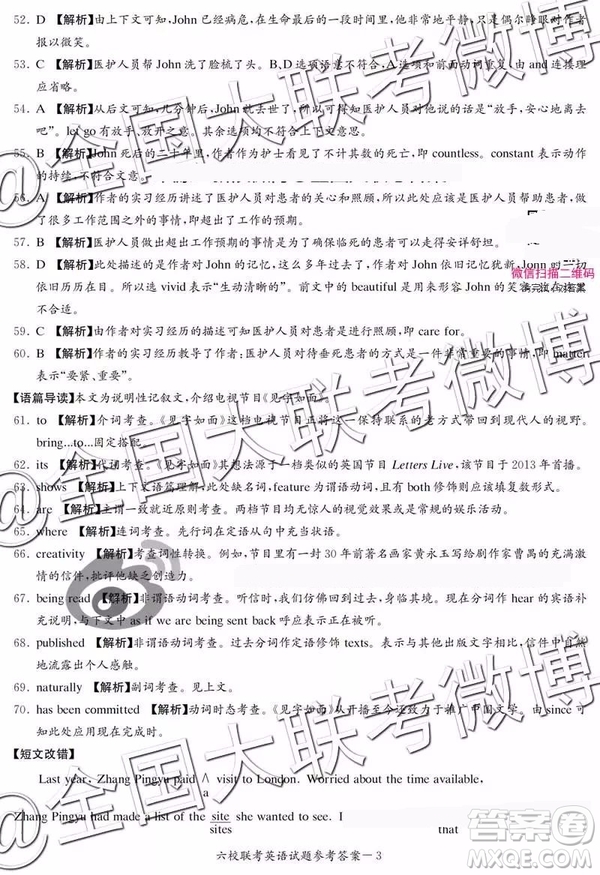 52. D 【解析】由上下文可知，John已经病危，在生命最后的一段时间里，他非常地平静，只是偶尔睁眼对作者
报以微笑。
53. C 【解析】医护人员帮John洗了脸梳了头。B、D选项语意不符合，A选项参与搭配不符合，由and连接理
应省略。
54. A 【解析】从后文可知，几分钟后，John去世了，所以可得知医护人员对他说的话是“放手，安心地离去
吧”。let go有放手、放开之意。其余选项均不符合上下文意思。
55. B 【解析】John死后的二十年里，作者作为护士看见了不计其数的死亡，即countless。constant表示动作
的持续，不符合文意。
56. A 【解析】作者的实习经历讲述了医护人员对患者的关心，所以此处应该是医护人员帮助患者，做
了很多工作范围之外的事情，即超出了工作的预期。
57. B 【解析】医护人员做出超出工作预期的事情是为了确保临死的患者能走得安详舒坦。
58. D 【解析】此处描述的是作者对John的记忆，这么多年过去了，作者对John依旧记忆犹新，John的
依旧历历在目，所以选vivid表示“生动清晰的”。前文中的beautiful是用来形容John的笑容，放在此处
不合适。
59. C 【解析】由作者对实习经历的描述可知医护人员对患者进行照顾，即care for。
60.
【语篇导读】本文为说明性记叙文，介绍电视节目《见字如面》。
61. to 【解析】介词考查。《见字如面》这档电视节目将这种以一种保持联系的老方式带回到现代人的视野。
bring...to...固定搭配。
62. its 【解析】代词考查。《见字如面》其想法源于一档类似的英国节目 Letters Live，该节目于2013年首播。
63. shows 【解析】上下文语篇理解、此处缺名词，feature为谓语动词，且有both修饰则应该填复数形式。
64. are 【解析】主谓一致与时态。两档节目均无惊人的视觉效果或是常规的娱乐活动。
65. where 【解析】连词考查。先行词在定语从句中充当状语。
66. creativity 【解析】考查词性转换。例如，节目里有一封30年前著名画家黄永玉写给剧作家曹禺的充满激
情的信件，批评他缺乏创造力。
67. being read 【解析】非谓语动词考查。听信时，我们仿佛回到了过去，身临其境。现在分词作hear的宾语补
充说明，与下文中as if we are being sent back呼应表示被动。
68. published 【解析】非谓语动词考查。过去分词作定语修饰texts。表示与出版文章相比较，信件中能自
然地流露出真情实感。
69. naturally 【解析】副词考查。见上文。
70. has been committed 【解析】动词时态考查。《见字如面》从开播至今还致力于推广中国文学。由since可
知此处应用现在完成时。
【短文改错】
Last year, Zhang Pingyu paid ∧ visit to London. Worried about the time available,
a
Zhang Pingyu had made a list of the site she wanted to see. I
sites that
六校联考英语试题参考答案－3
微信扫描二维码
@全国大联考微博
答案圈